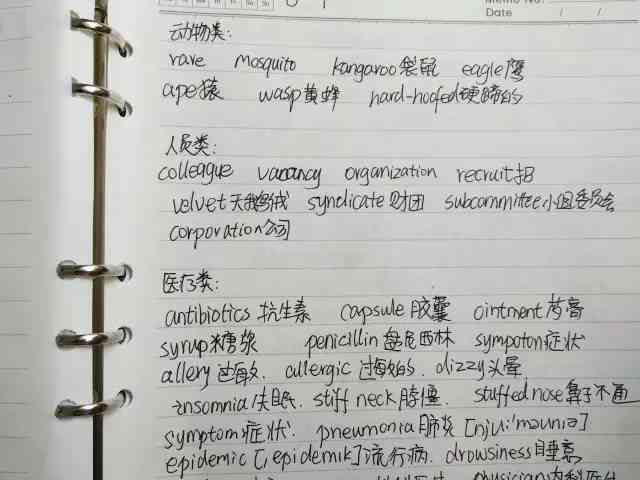 Memo No.
Date / /
动物类:
rave Mosquito kangaroo袋鼠 eagle鹰
ape猿 wasp黄蜂 hard-hoofed硬蹄的
人员类:
colleague vacancy organization recruit招
velvet天鹅绒 syndicate财团 subcommittee小组委员会
corporation公司
医疗类:
antibiotics抗生素 capsule胶囊 ointment药膏
syrup糖浆 penicillin盘尼西林 sympoton症状
allery过敏. allergic过敏的. dizzy头晕
insomnia失眠. stiff neck脖僵 stuffed nose鼻子不通
symptom症状. pneumonia肺炎 [njuːˈməunia]
epidemic [ˌepidemik]流行病. drowsiness目垂意
physician内科医生